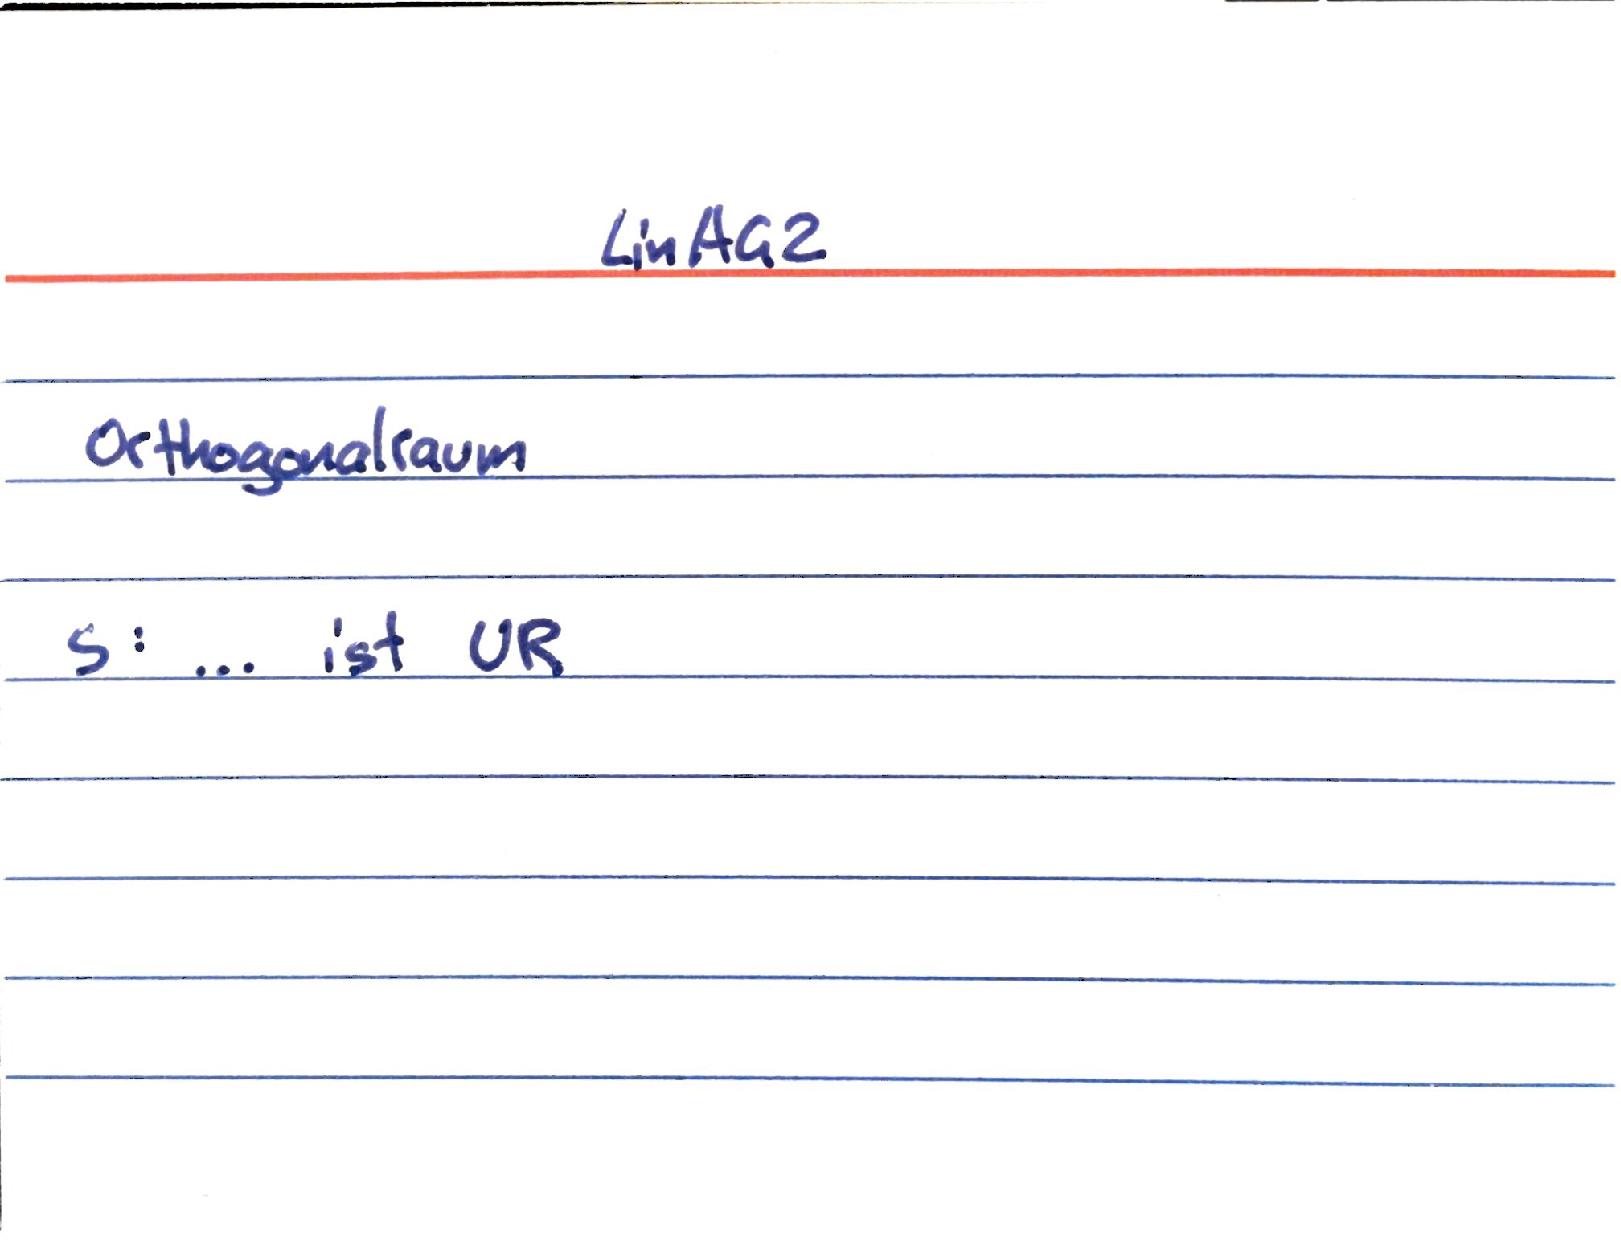 LinAG2
Orthogonalraum
S: ... ist UR